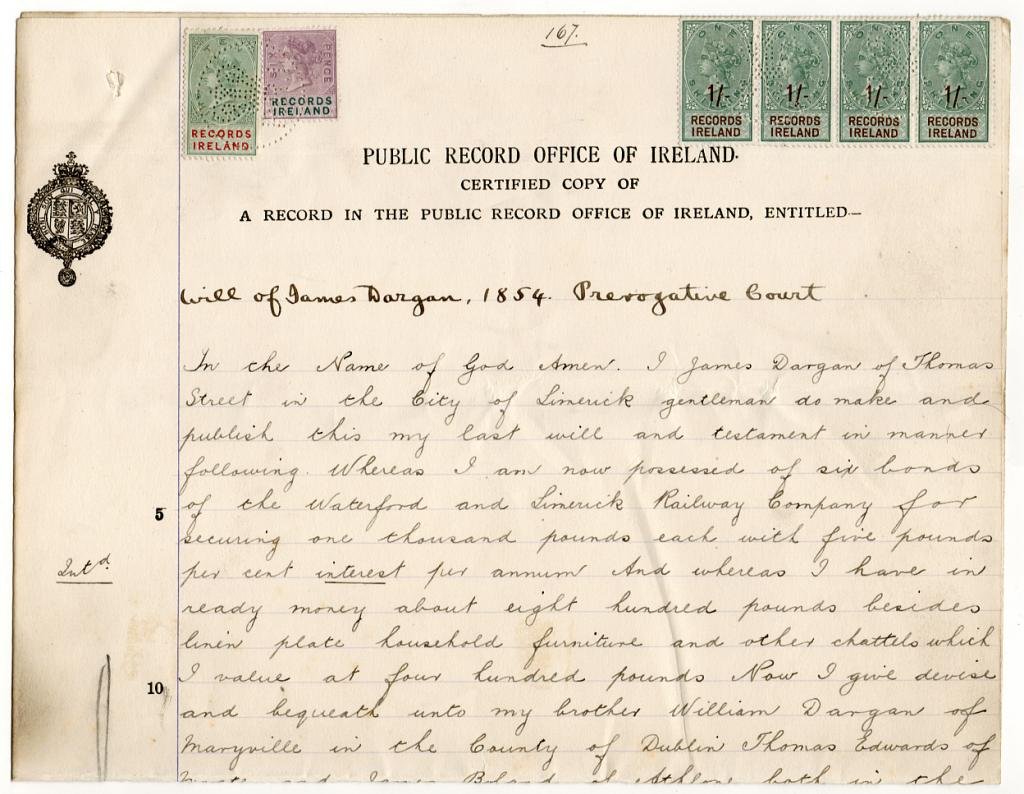 167.
RECORDS
IRELAND
SIX PENCE
RECORDS
IRELAND
ONE SHILLING
1/-
RECORDS
IRELAND
ONE SHILLING
1/-
RECORDS
IRELAND
ONE SHILLING
1/-
RECORDS
IRELAND
ONE SHILLING
1/-
RECORDS
IRELAND
PUBLIC RECORD OFFICE OF IRELAND.
CERTIFIED COPY OF
A RECORD IN THE PUBLIC RECORD OFFICE OF IRELAND, ENTITLED—
Will of James Dargan, 1854. Prerogative Court
In the Name of God Amen. I James Dargan of Thomas
Street in the City of Limerick gentleman do make and
publish this my last will and testament in manner
following. Whereas I am now possessed of six bonds
5 of the Waterford and Limerick Railway Company for
securing one thousand pounds each with five pounds
Intd. per cent interest per annum And whereas I have in
ready money about eight hundred pounds besides
linen plate household furniture and other chattels which
10 I value at four hundred pounds Now I give devise
and bequeath unto my brother William Dargan of
Maryville in the County of Dublin Thomas Edwards of
and James Boland of Athlone both in the